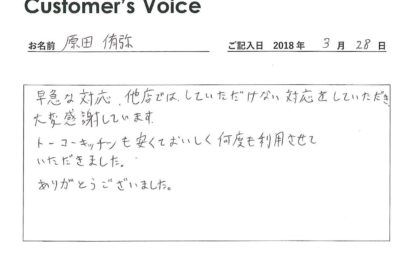 Customer's Voice
お名前 原田 侑弥 ご記入日 2018年 3月 28日
早急な対応、他店では、していただけない対応をしていただき
大変感謝しています
トーコーキッチンも安くておいしく何度も利用させて
いただきました。
ありがとうございました。